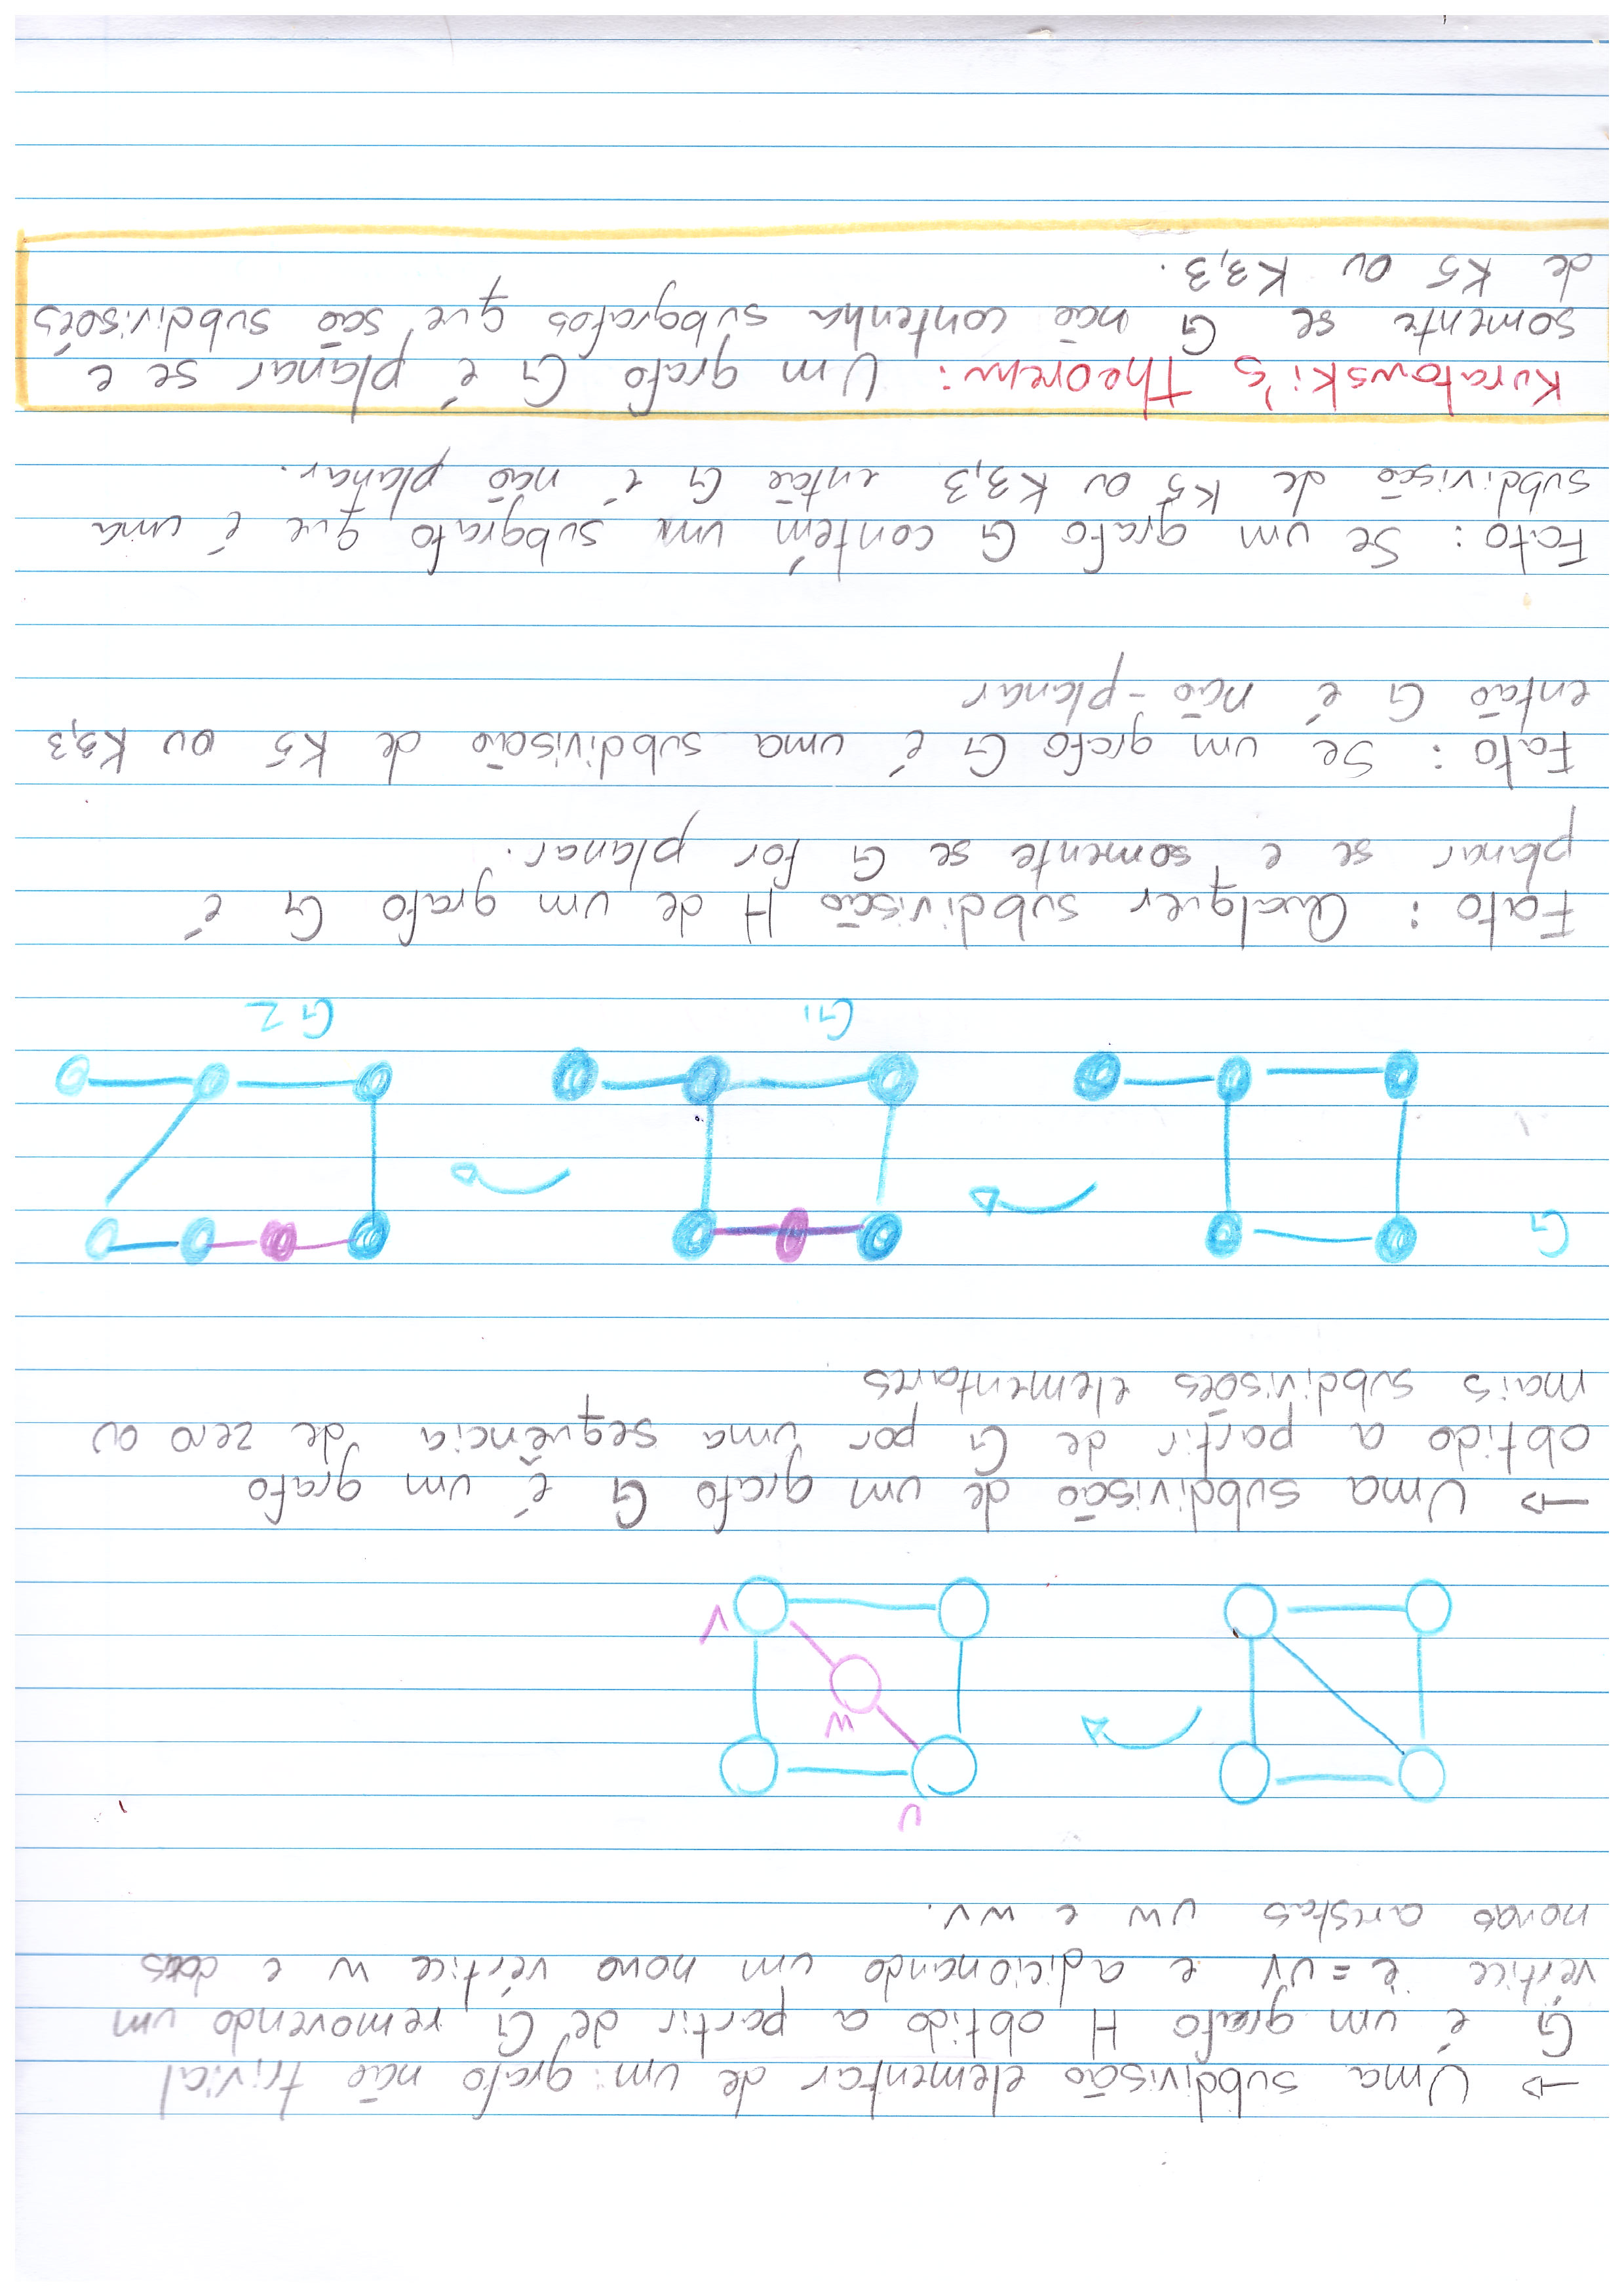 → Uma subdivisão elementar de um grafo não trivial
G é um grafo H obtido a partir de G, removendo um
vértice e = uv e adicionando um novo vértice w e duas
novas arestas uw e wv.
U
W
V
→ Uma subdivisão de um grafo G é um grafo
obtido a partir de G por uma sequência de zero ou
mais subdivisões elementares
G
G1
G2
Fato: Qualquer subdivisão H de um grafo G é
planar se e somente se G for planar.
Fato: Se um grafo G é uma subdivisão de K5 ou K3,3
então G é não-planar
Fato: Se um grafo G contém um subgrafo que é uma
subdivisão de K5 ou K3,3 então G é não planar.
Kuratowski's Theorem: Um grafo G é planar se e
somente se G não contenha subgrafos que são subdivisões
de K5 ou K3,3.